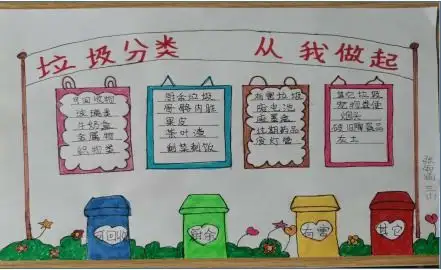 垃圾分类 从我做起
可回收物
玻璃类
牛奶盒
金属物
织物类
厨余垃圾
骨骼内脏
果皮
茶叶渣
剩菜剩饭
有害垃圾
废电池
废墨盒
过期药品
废灯管
其它垃圾
宠物粪便
烟头
破旧陶瓷品
灰土
可回收
厨余
有害
其它